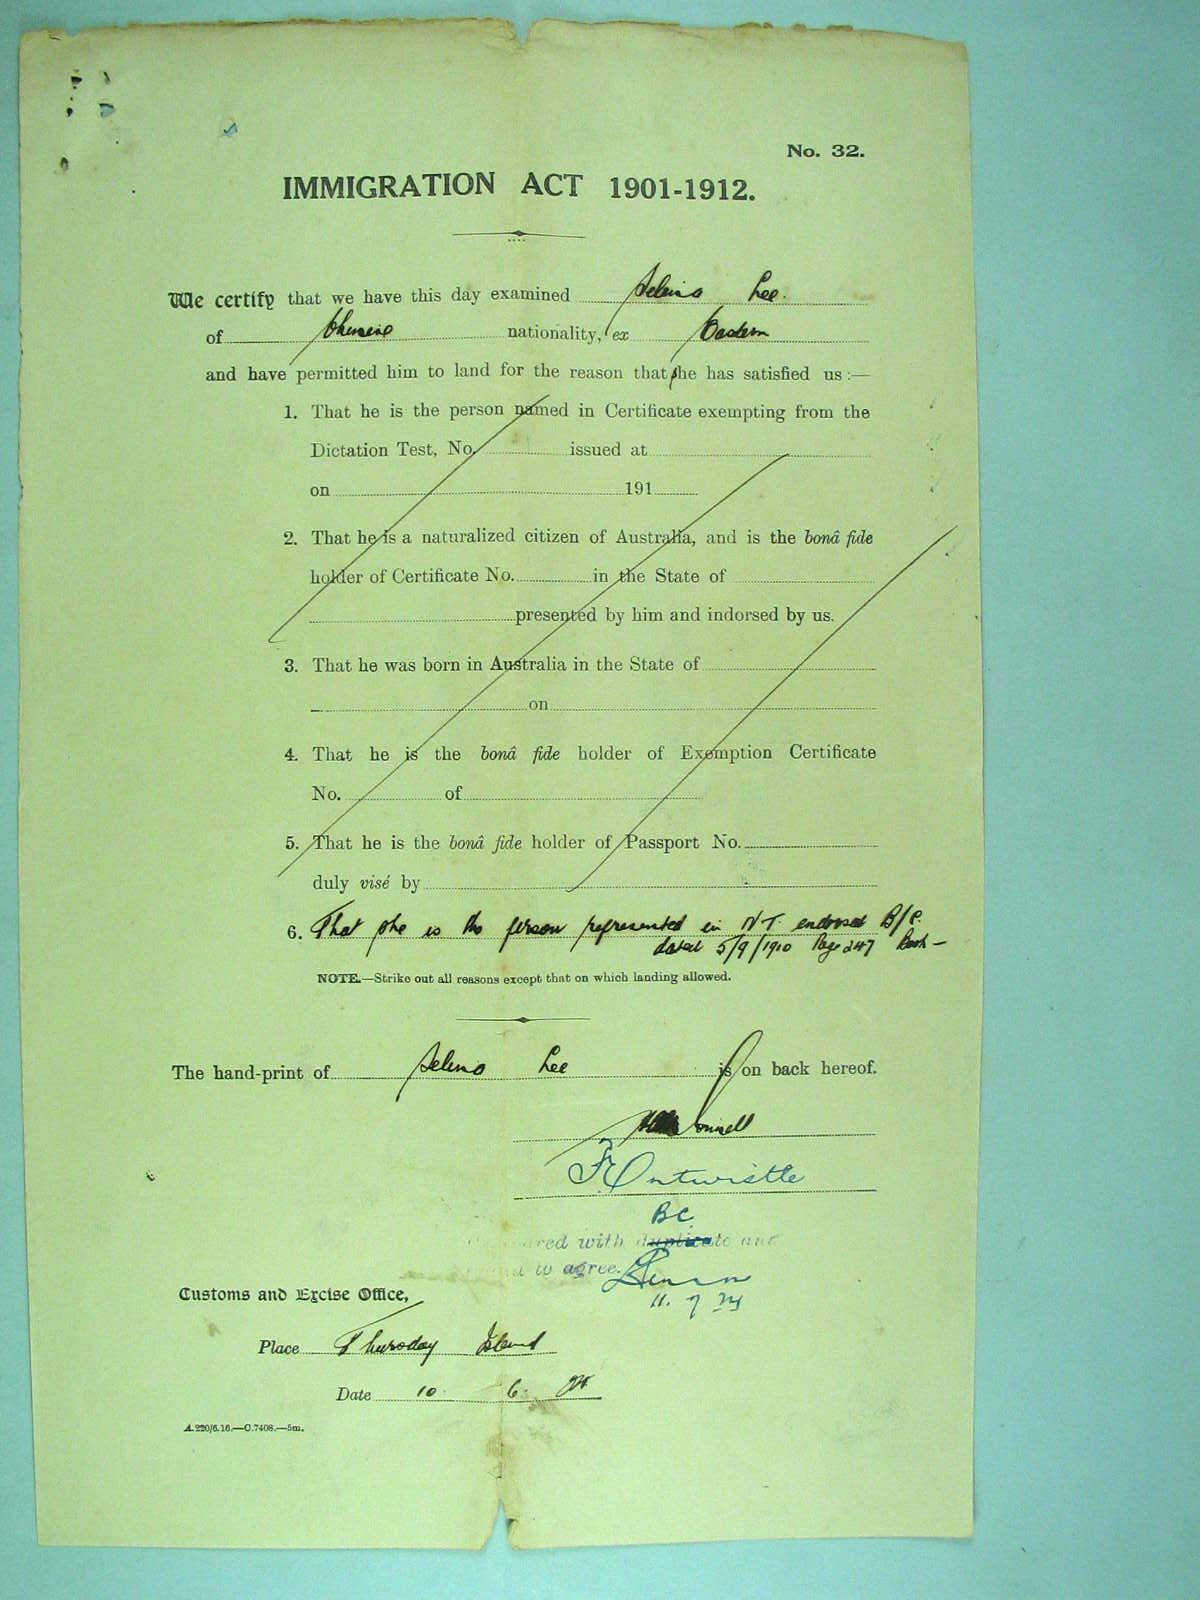 No. 32.
IMMIGRATION ACT 1901-1912.
We certify that we have this day examined Selena Lee.
of Chinese nationality, ex Eastern
and have permitted him to land for the reason that she has satisfied us :—
1. That he is the person named in Certificate exempting from the
Dictation Test, No. issued at
on 191
2. That he is a naturalized citizen of Australia, and is the bonâ fide
holder of Certificate No. in the State of
presented by him and indorsed by us.
3. That he was born in Australia in the State of
on
4. That he is the bonâ fide holder of Exemption Certificate
No. of
5. That he is the bonâ fide holder of Passport No.
duly visé by
6. That she is the person represented in N.T. endorsed B/C.
dated 5/9/1910 Page 247 Book —
NOTE.—Strike out all reasons except that on which landing allowed.
The hand-print of Selena Lee is on back hereof.
F Entwistle
BC
red with duplicate and
to agree.
11. 7
Customs and Excise Office,
Place Thursday Island
Date 10. 6.
A.220/6.16.—C.7408.—5m.